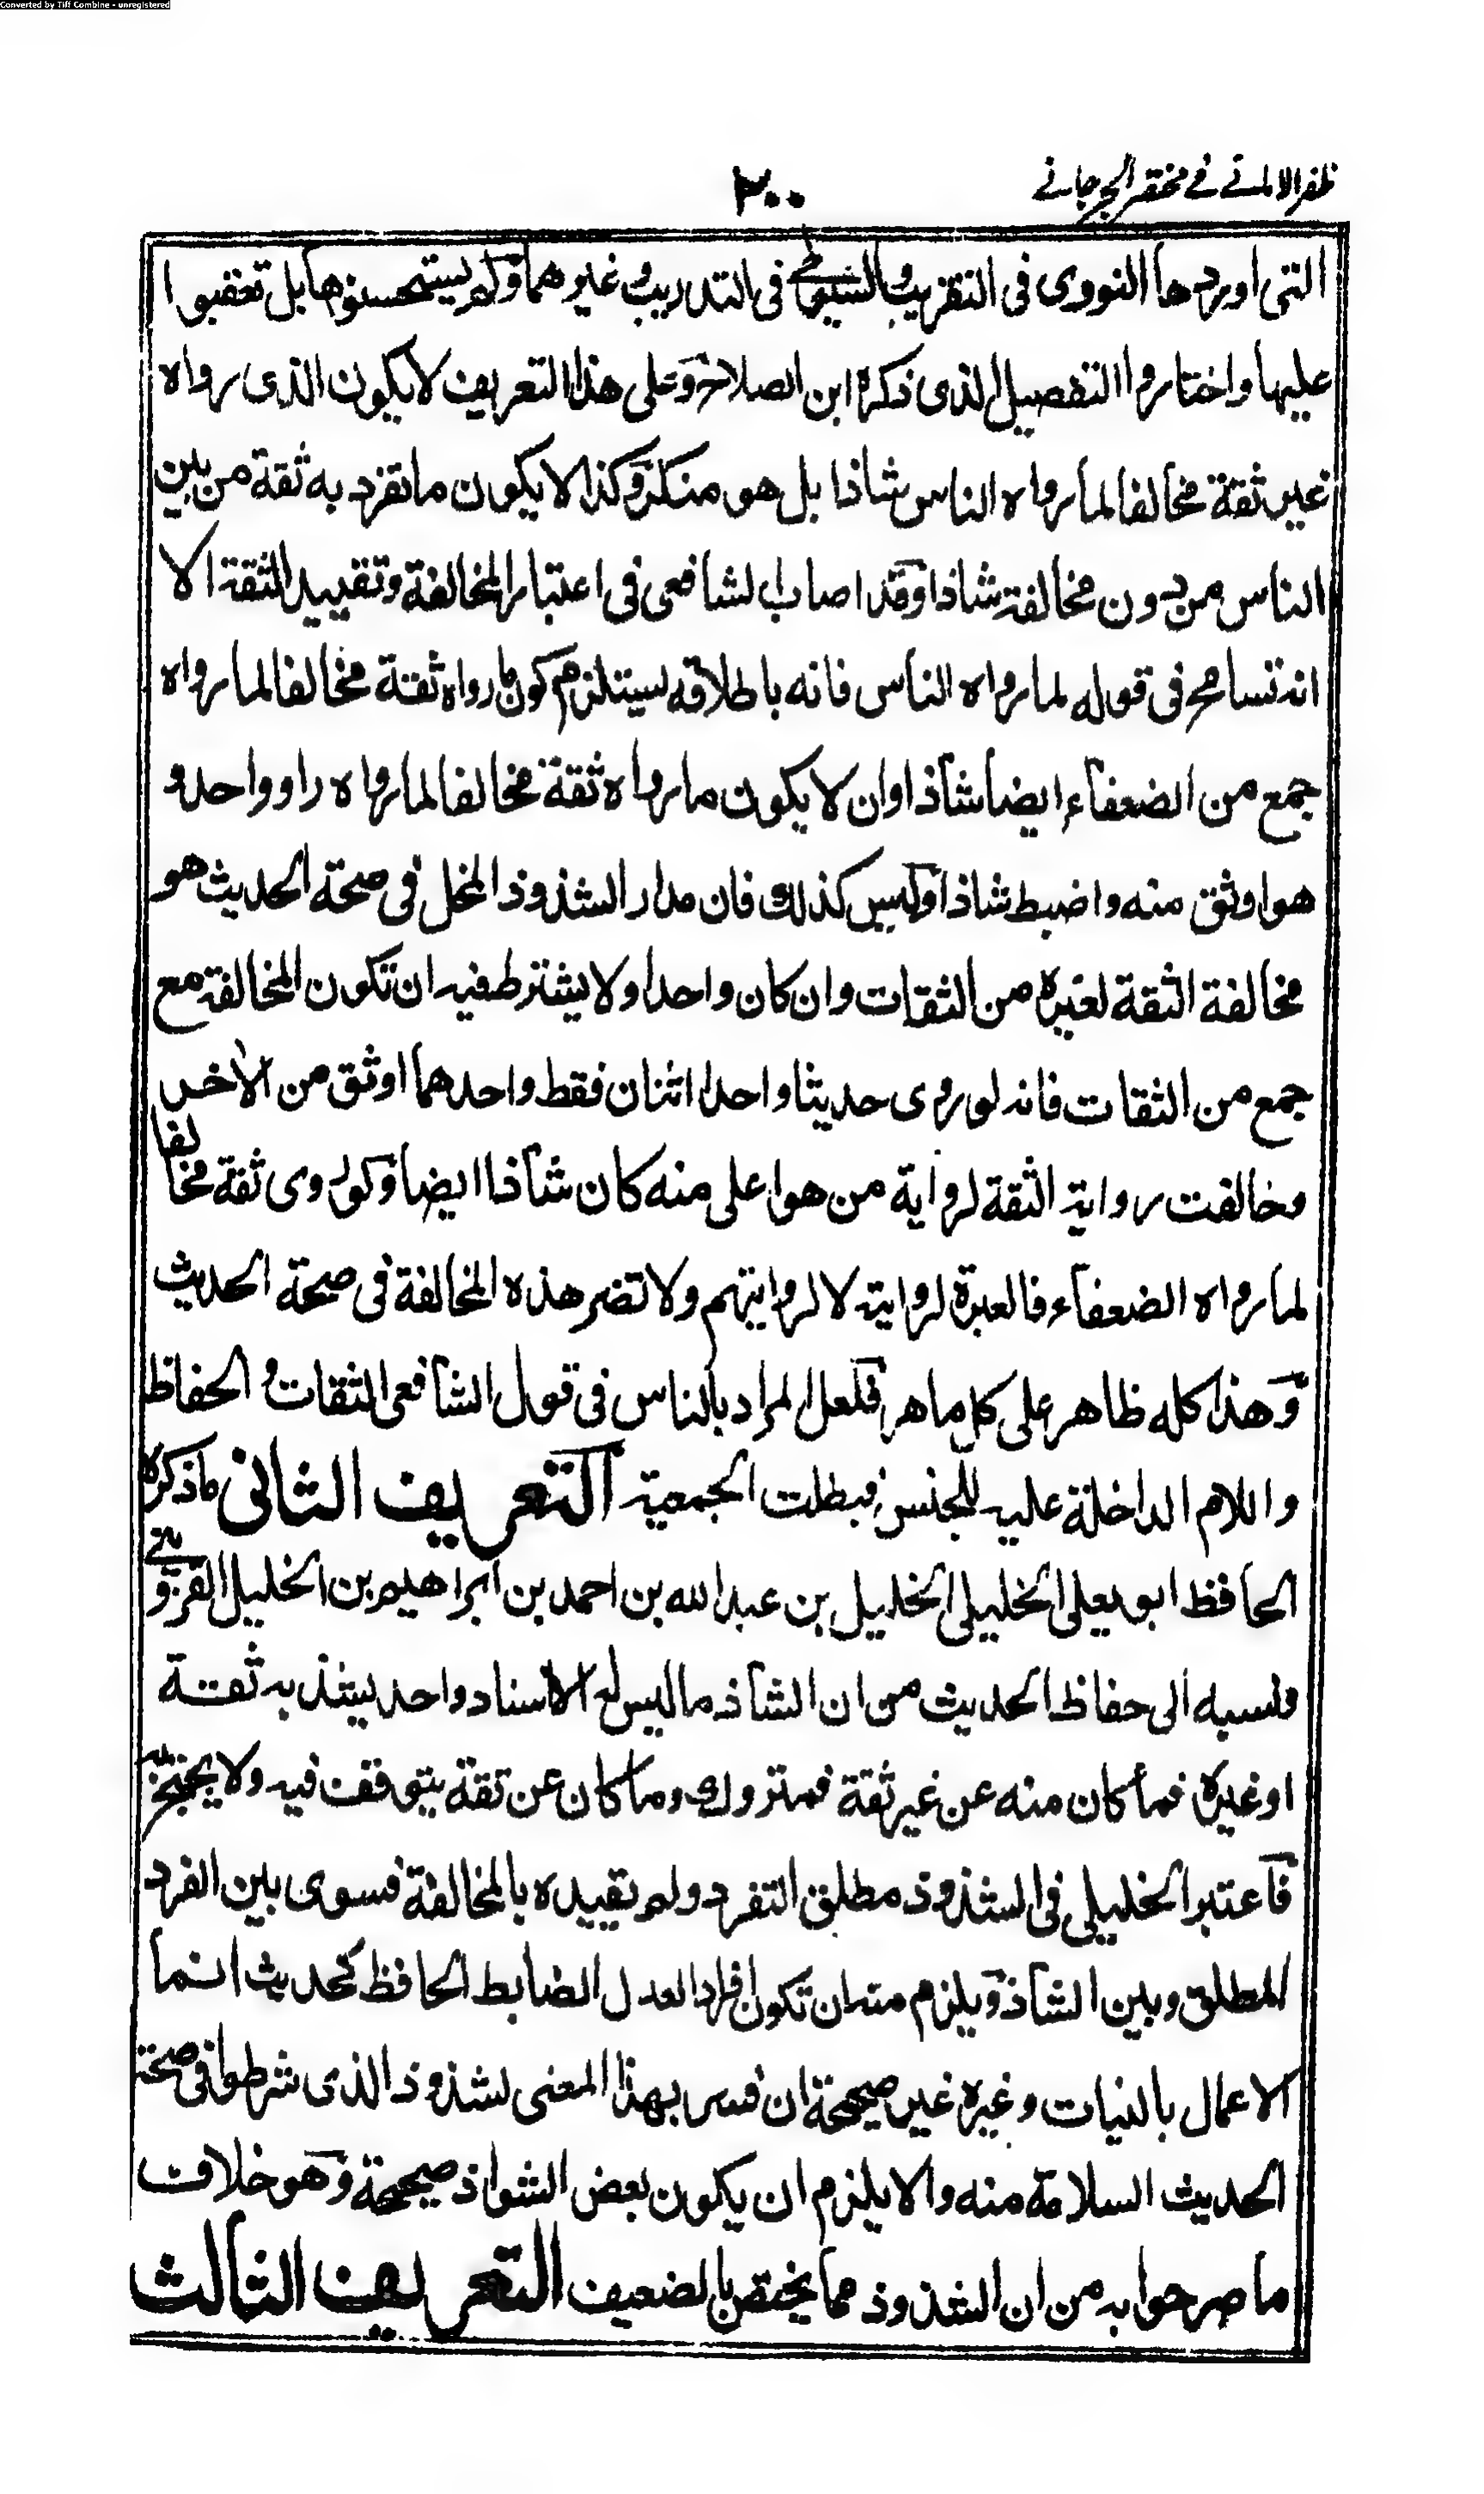 Converted by Tiff Combine - unregistered
ظفر الامانی فی مختصر الجرجانی
٢٠٠
التى اوردها النووى فى التقريب والسيوطى فى التدريب وغيرهما ولم يستحسنوها بل تعقبوا
عليها واختاروا التفصيل الذى ذكره ابن الصلاح وعلى هذا التعريف لا يكون الذى رواه
غير ثقة مخالفا لما رواه الناس شاذا بل هو منكر وكذا لا يكون ما تفرد به ثقة من بين
الناس من دون مخالفة شاذا وقد اصاب الشافعى فى اعتبار المخالفة وتقييد الثقة الا
انه تسامح فى قوله لما رواه الناس فانه باطلاقه يستلزم كون ما رواه ثقة مخالفا لما رواه
جمع من الضعفاء ايضا شاذا وان لا يكون ما رواه ثقة مخالفا لما رواه راو واحد و
هو اوثق منه واضبط شاذا وليس كذلك فان مدار الشذوذ المخل فى صحة الحديث هو
مخالفة الثقة لغيره من الثقات وان كان واحدا ولا يشترط فيه ان تكون المخالفة مع
جمع من الثقات فانه لو روى حديثا واحدا اثنان فقط واحدهما اوثق من الأخر
وخالفت رواية الثقة لرواية من هو اعلى منه كان شاذا ايضا ولو روى ثقة مخالفا
لما رواه الضعفاء فالعبرة لروايته لا لروايتهم ولا تضر هذه المخالفة فى صحة الحديث
وهذا كله ظاهر على كل ماهر فلعل المراد بالناس فى قول الشافعى الثقات و الحفاظ
واللام الداخلة عليه للجنس فبطلت الجمعية التعريف الثانى ما ذكره
الحافظ ابو يعلى الخليلى الخليل بن عبد الله بن احمد بن ابراهيم بن الخليل القزوينى
ونسبه الى حفاظ الحديث من ان الشاذ ما ليس له الا اسناد واحد يشذ به ثقة
او غيره فما كان منه عن غير ثقة فمتروك وما كان عن ثقة يتوقف فيه ولا يحتج به
فاعتبر الخليلى فى الشذوذ مطلق التفرد ولم يقيده بالمخالفة فسوى بين الفرد
المطلق وبين الشاذ ويلزم منه ان تكون افراد العدل الضابط الحافظ كحديث انما
الاعمال بالنيات وغيره غير صحيحة ان فسر بهذا المعنى الشذوذ الذى شرطوا فى صحة
الحديث السلامة منه والا يلزم ان يكون بعض الشواذ صحيحة وهو خلاف
ما صرحوا به من ان الشذوذ مما يختص بالضعيف التعريف الثالث